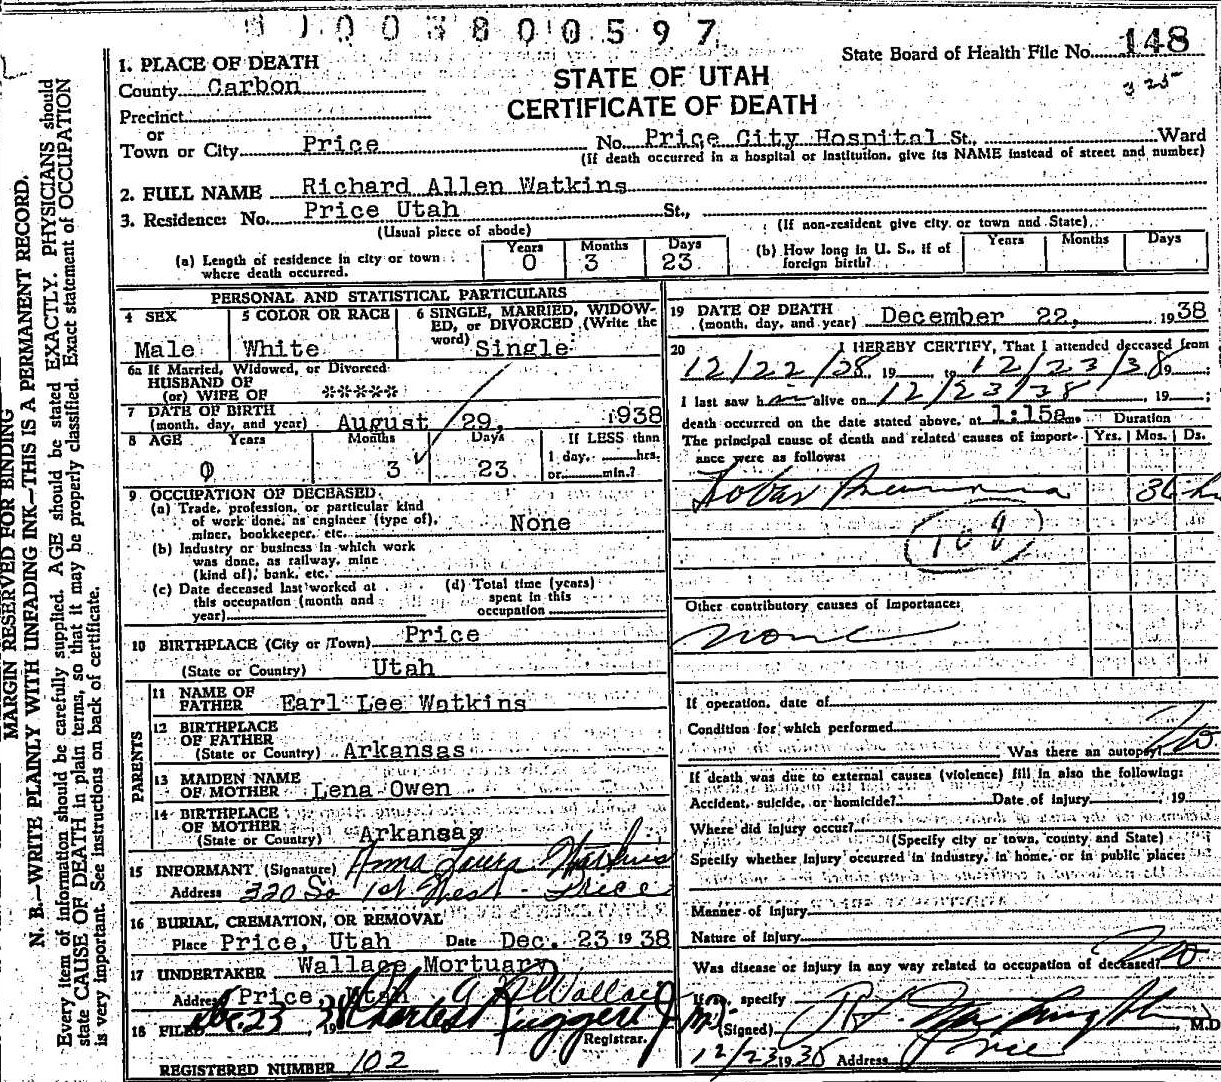 1003800597
State Board of Health File No. 148
325
STATE OF UTAH
CERTIFICATE OF DEATH
1. PLACE OF DEATH
County Carbon
Precinct
or
Town or City Price No. Price City Hospital St., Ward
(If death occurred in a hospital or institution, give its NAME instead of street and number)
2. FULL NAME Richard Allen Watkins
3. Residence: No. Price Utah St.,
(Usual place of abode) (If non-resident give city or town and State)
(a) Length of residence in city or town where death occurred. Years 0 Months 3 Days 23
(b) How long in U. S., if of foreign birth? Years Months Days
PERSONAL AND STATISTICAL PARTICULARS
4 SEX Male
5 COLOR OR RACE White
6 SINGLE, MARRIED, WIDOWED, or DIVORCED (Write the word) Single
6a If Married, Widowed, or Divorced
HUSBAND OF
(or) WIFE OF *****
7 DATE OF BIRTH
(month, day, and year) August 29, 1938
8 AGE Years 0 Months 3 Days 23 If LESS than 1 day, hrs. or min.?
9 OCCUPATION OF DECEASED.
(a) Trade, profession, or particular kind
of work done, as engineer (type of),
miner, bookkeeper, etc. None
(b) Industry or business in which work
was done, as railway, mine
(kind of), bank, etc.
(c) Date deceased last worked at
this occupation (month and
year)
(d) Total time (years)
spent in this
occupation
10 BIRTHPLACE (City or Town) Price
(State or Country) Utah
PARENTS
11 NAME OF FATHER Earl Lee Watkins
12 BIRTHPLACE OF FATHER
(State or Country) Arkansas
13 MAIDEN NAME OF MOTHER Lena Owen
14 BIRTHPLACE OF MOTHER
(State or Country) Arkansas
15 INFORMANT (Signature) Anna Laura Watkins
Address 320 So 1st West - Price
16 BURIAL, CREMATION, OR REMOVAL
Place Price, Utah Date Dec. 23 1938
17 UNDERTAKER Wallace Mortuary
Address Price, Utah Wallace
18 FILED Dec. 23, 1938 Charles Ruggeri Jr M.D.
Registrar.
REGISTERED NUMBER 102
19 DATE OF DEATH
(month, day, and year) December 22, 1938
20 I HEREBY CERTIFY, That I attended deceased from
12/22/38, 19 to 12/23/38, 19;
I last saw him alive on 12/23/38, 19;
death occurred on the date stated above, at 1:15a m. Duration
The principal cause of death and related causes of importance were as follows: Yrs. Mos. Ds.
Lobar Pneumonia 36 hr
108
Other contributory causes of importance:
none
If operation, date of
Condition for which performed
Was there an autopsy? no
If death was due to external causes (violence) fill in also the following:
Accident, suicide, or homicide? Date of injury , 19
Where did injury occur?
(Specify city or town, county and State)
Specify whether injury occurred in industry, in home, or in public place:
Manner of Injury
Nature of Injury
Was disease or injury in any way related to occupation of deceased? no
If so, specify
(Signed) M.D.
12/23 1938 Address Price
MARGIN RESERVED FOR BINDING
N. B.—WRITE PLAINLY WITH UNFADING INK—THIS IS A PERMANENT RECORD.
Every item of information should be carefully supplied. AGE should be stated EXACTLY. PHYSICIANS should
state CAUSE OF DEATH in plain terms, so that it may be properly classified. Exact statement of OCCUPATION
is very important. See instructions on back of certificate.